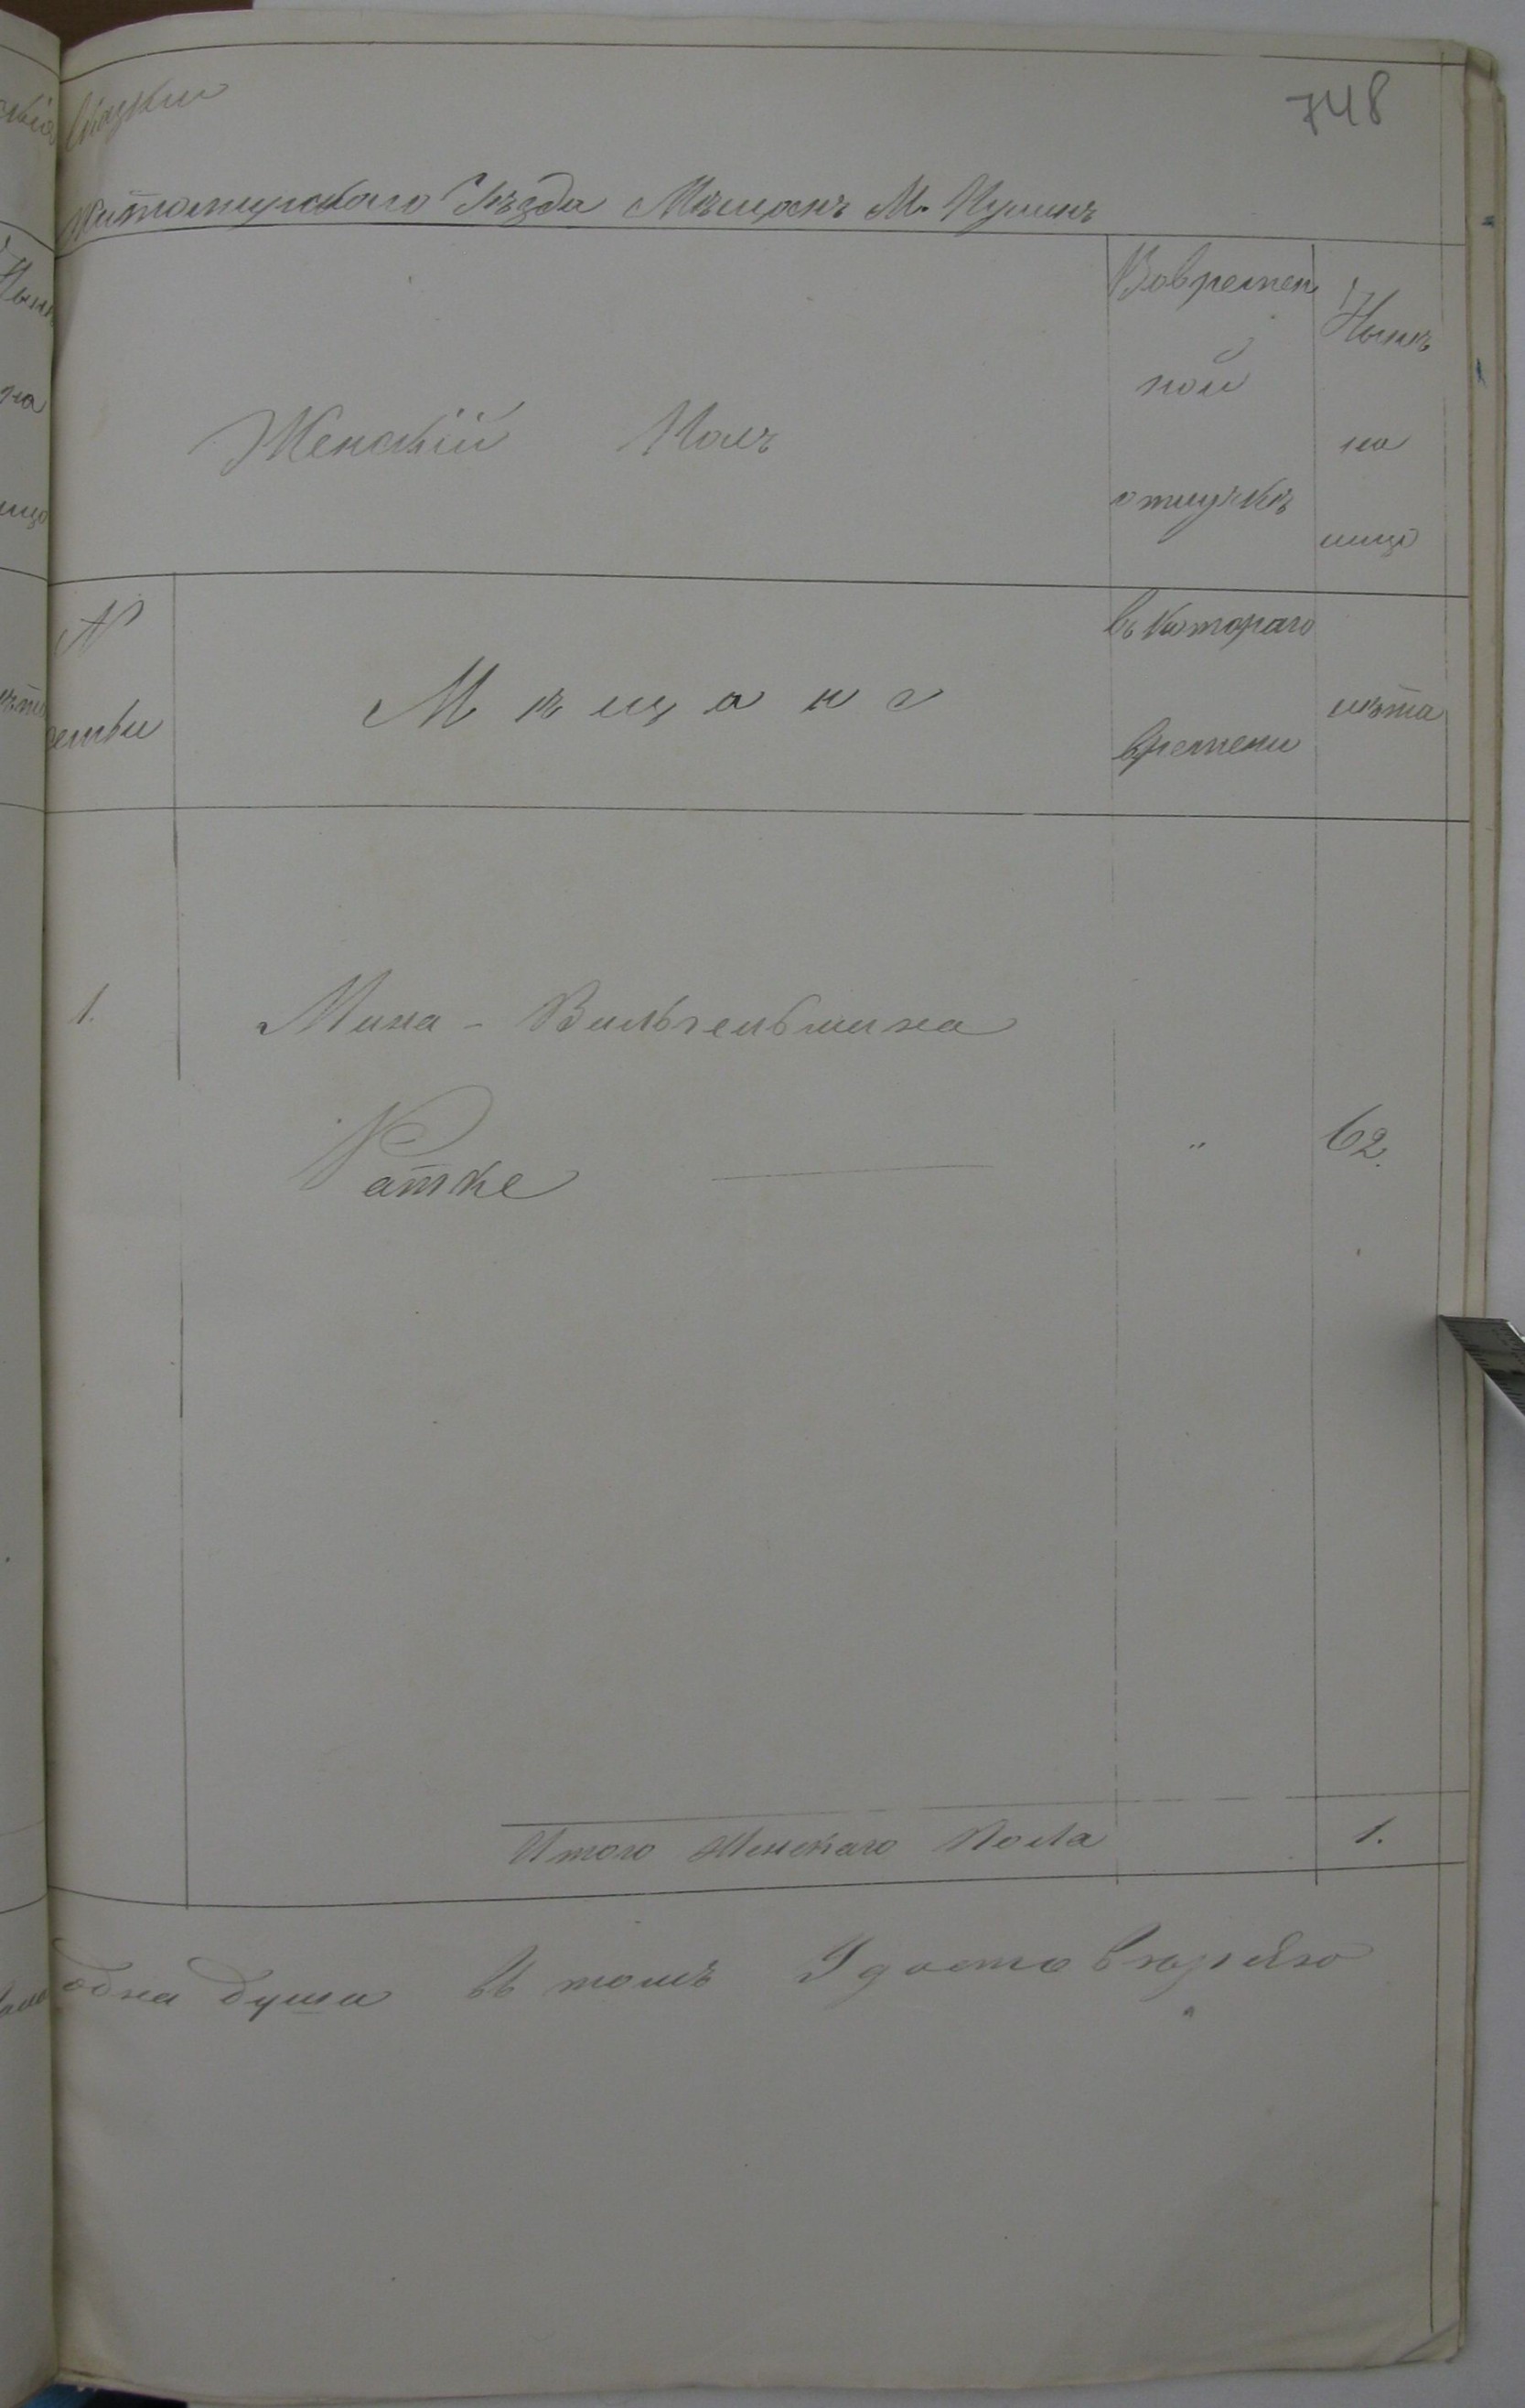 748
Сказки
Житомирскаго Уѣзда Мѣщанъ М. Пулинъ
Женскій Полъ
Вовремен
ной
отлучкѣ
Нынѣ
на
лицо
№
семьи
Мѣщане
съ котораго
времени
лѣта
1. Мина - Вильгельмина
Ратке " 62.
Итого Женскаго Пола 1.
одна душа въ томъ Удостовѣряю